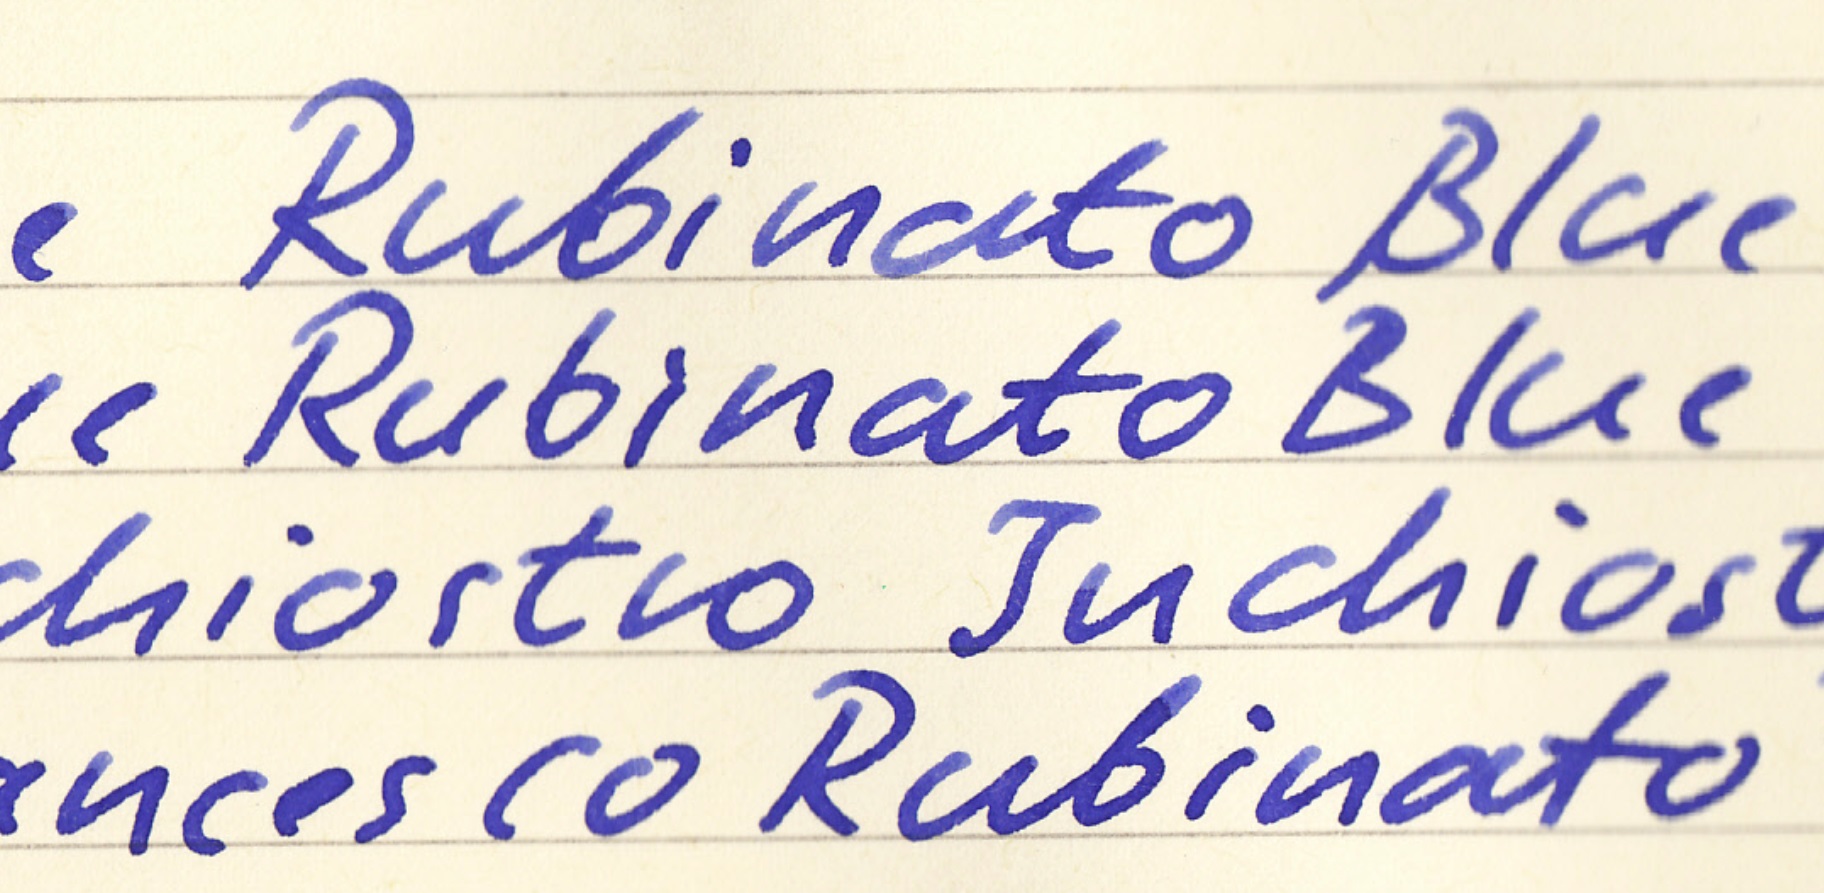 e Rubinato Blue
ue Rubinato Blue
chiostro Inchiost
ances co Rubinato